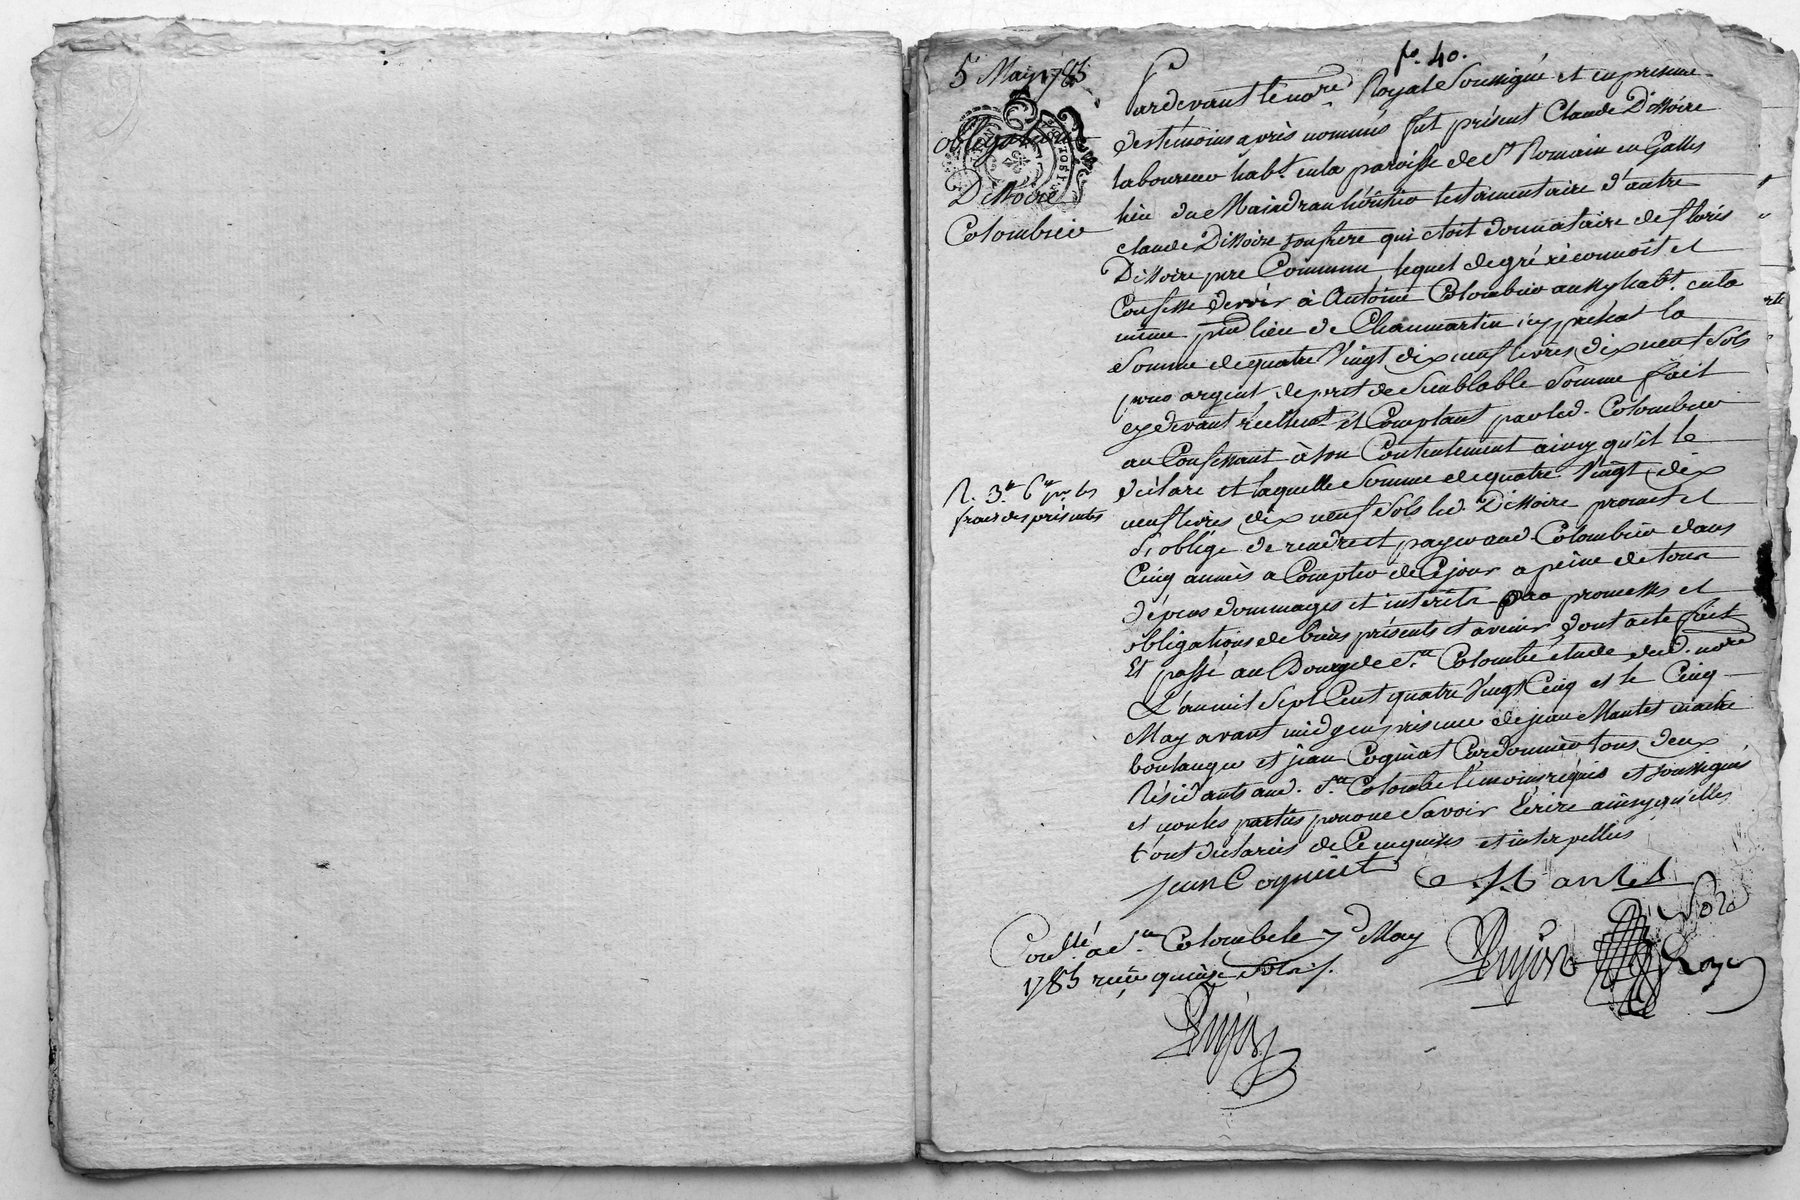 fo. 40.
5 May 1785
obligation
Dissoire
Colombier
Pardevant le nore. Royal Soussigné et en presence
des témoins après nommés fut présent Claude Dissoire
laboureur habt. en la paroisse de St Romain en Galles
lieu du héritier testamentaire d'autre
claude Dissoire son frere qui etoit donnataire de floris
Dissoire pere Commun, lequel de gré réconnoit et
Confesse devoir à Antoine Colombier aussy habt. en la
même psse lieu de Chanmartin icy présent la
Somme de quatre Vingt dix neuf livres dix neuf Sols
pour argent de pret de Semblable Somme fait
cy devant réellemt. et Comptant par led. Colombier
au Confessant à son Contentement ainsy qu'il le
déclare et laquelle Somme de quatre Vingt dix
neuf livres dix neuf Sols led. Dissoire promet et
S'oblige de rendre et payer aud. Colombier dans
Cinq années a Compter de Ce jour a peine de tous
dépens dommages et interets par promesses et
obligations de biens présents et avenir, dont acte fait
Et passé au Bourg de Ste. Colombe étude dud. nore
L'an mil Sept Cent quatre Vingt Cinq et le Cinq
May avant midy en présence de jean Mantet maitre
boulanger et jean Cogniat Cordonnier tous deux
Résidants aud. Ste. Colombe témoins réquis et soussignés
et non les parties pour ne Savoir Ecrire ainsy qu'elles
l'ont déclarés de Ce enquises et interpellées
R. 3lt 6s pr. les
frais des présentes
jean Cogniat
Mantet
Contllé à Ste Colombe le 7e May
1785 reçu quinze Sols
Dujon
Royal
Dujon